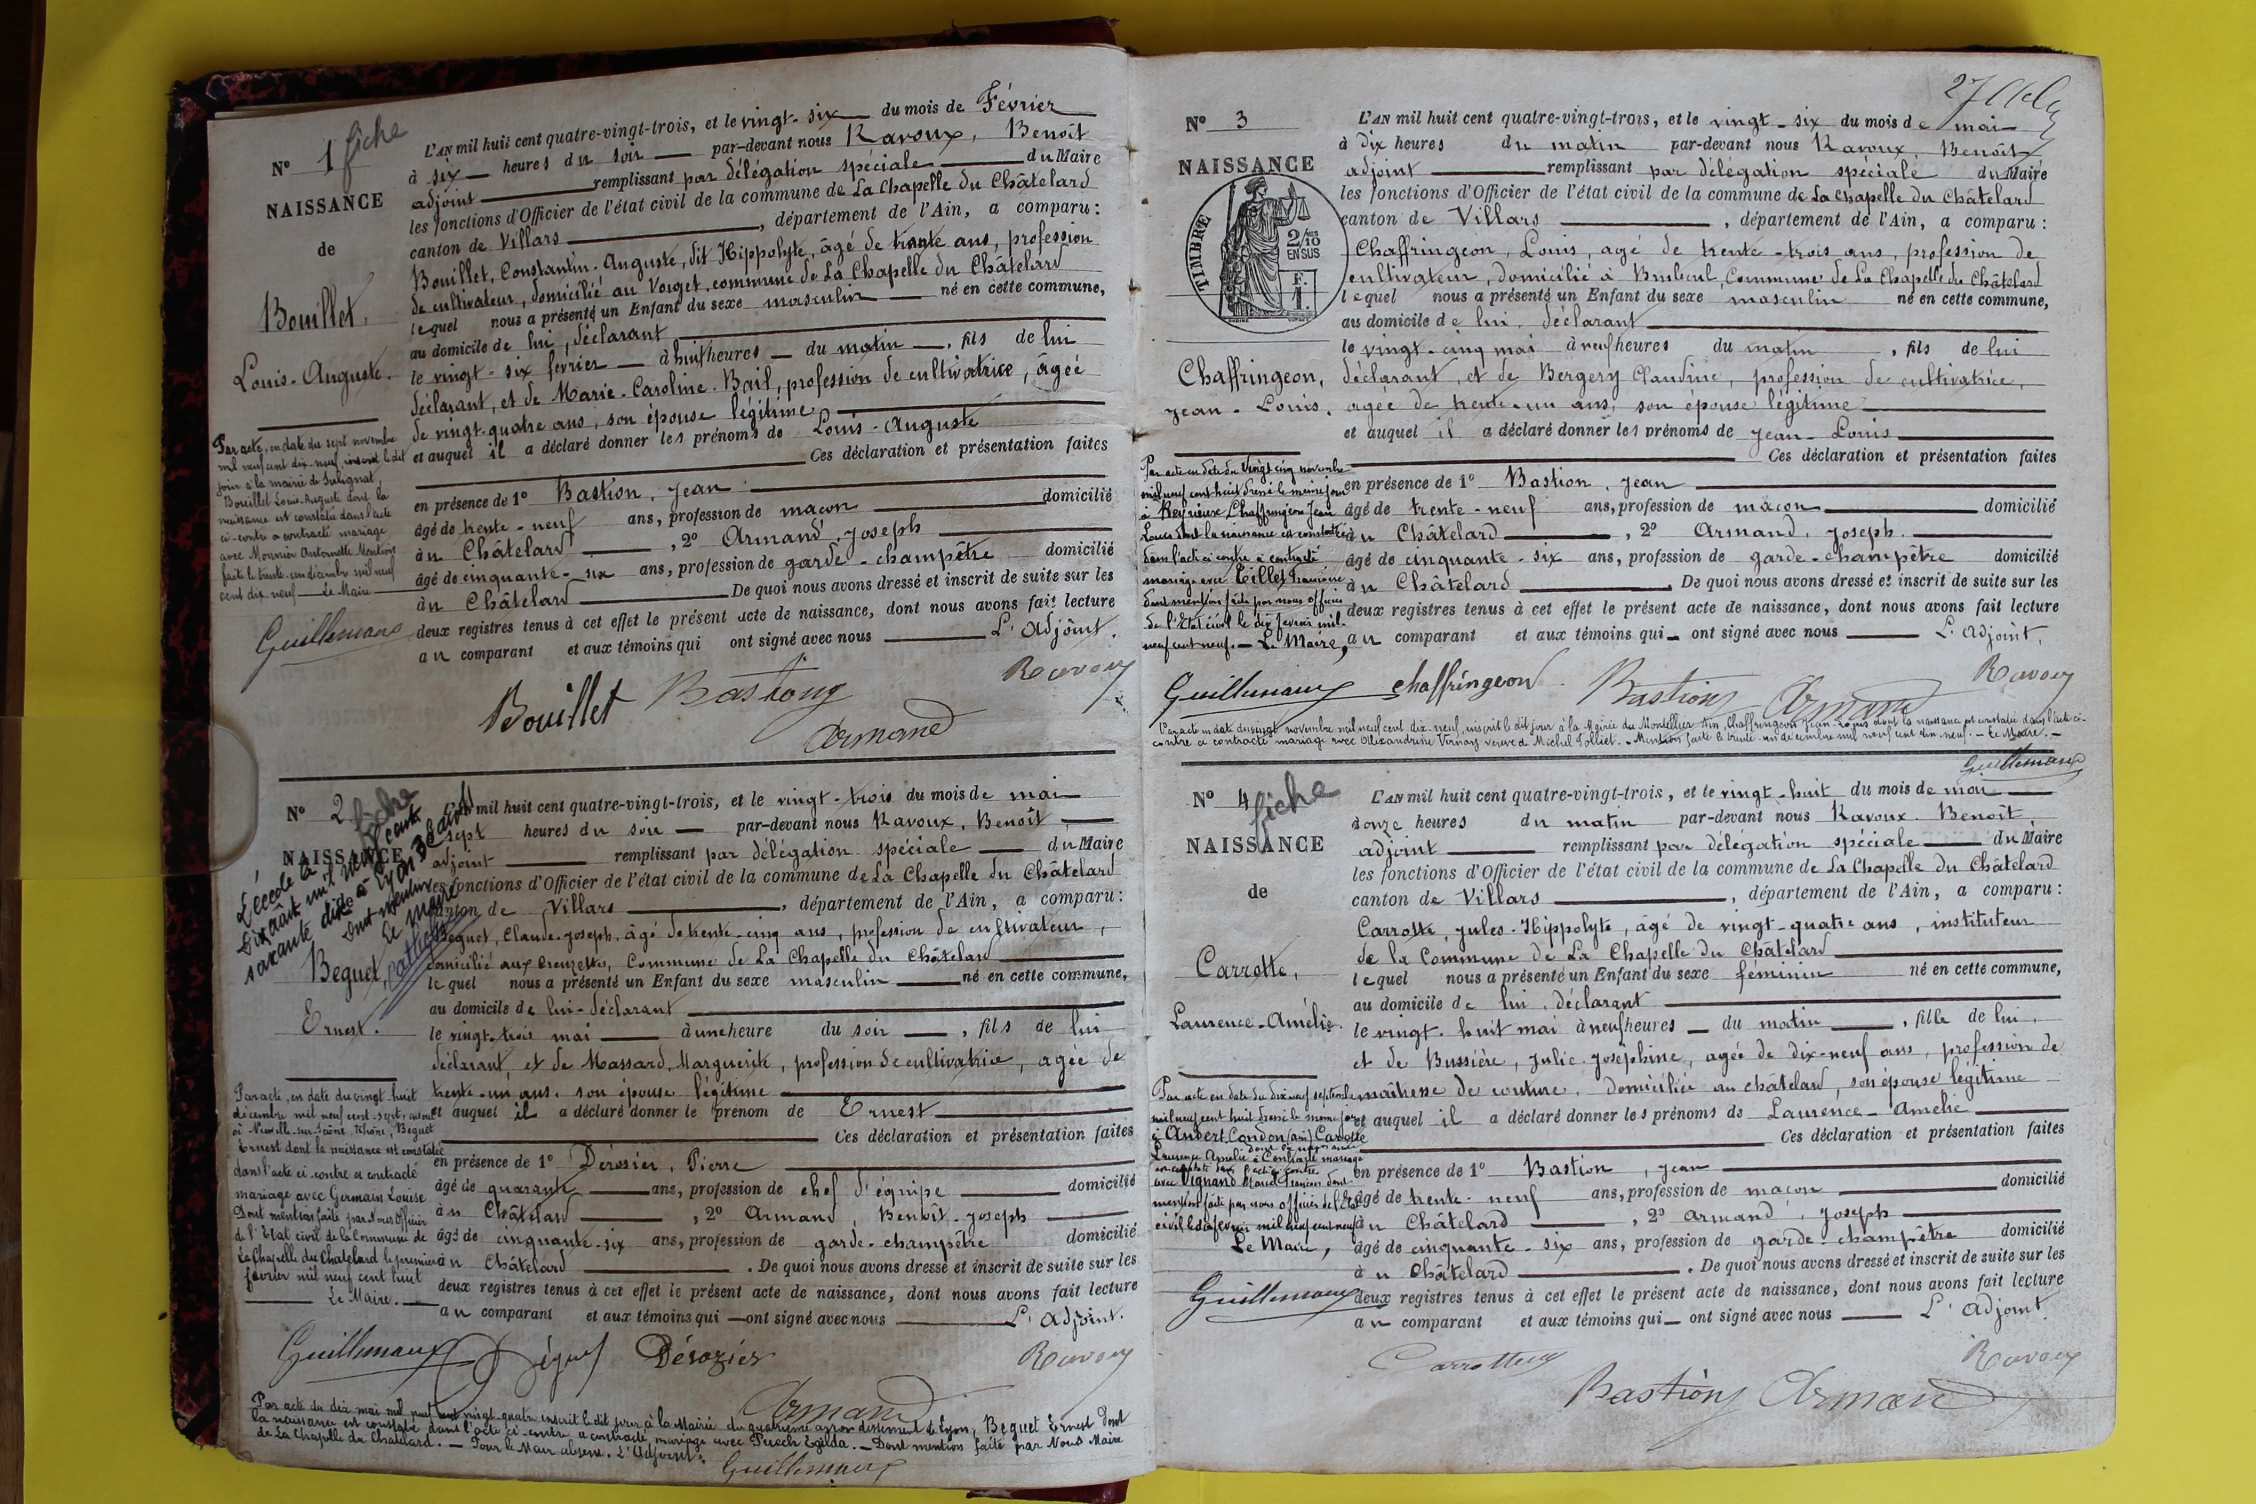 N° 1 fiche
NAISSANCE
de
Bouillet,
Louis-Auguste.
L'AN mil huit cent quatre-vingt-trois, et le vingt-six du mois de Février
à six heures du soir par-devant nous Ravoux, Benoît
adjoint remplissant par délégation spéciale du Maire
les fonctions d'Officier de l'état civil de la commune de La Chapelle du Châtelard
canton de Villars, département de l'Ain, a comparu:
Bouillet, Constantin-Auguste, dit Hippolyte, âgé de trente ans, profession
de cultivateur, domicilié au Vorget, commune de La Chapelle du Châtelard
lequel nous a présenté un Enfant du sexe masculin né en cette commune,
au domicile de lui, déclarant
le vingt-six fevrier à huit heures du matin, fils de lui
déclarant, et de Marie-Caroline-Bail, profession de cultivatrice, âgée
de vingt-quatre ans, son épouse légitime
et auquel il a déclaré donner les prénoms de Louis-Auguste
Ces déclaration et présentation faites
en présence de 1° Bastion, Jean
âgé de trente-neuf ans, profession de maçon domicilié
au Châtelard, 2° Armand, Joseph
âgé de cinquante-six ans, profession de garde-champêtre domicilié
au Châtelard De quoi nous avons dressé et inscrit de suite sur les
deux registres tenus à cet effet le présent acte de naissance, dont nous avons fait lecture
au comparant et aux témoins qui ont signé avec nous L'Adjoint.
Par acte, en date du sept novembre
mil neuf cent dix-neuf, inscrit le dit
jour à la mairie de Sulignat,
Bouillet Louis-Auguste dont la
naissance est constatée dans l'acte
ci-contre a contracté mariage
avec Mounier Antoinette Mention
faite le trente-un décembre mil neuf
cent dix-neuf Le Maire
Guillemaux
Bouillet Bastion Ravoux
Armand
N° 2 fiche
NAISSANCE
Décédé le
dix août mil neuf cent
soixante dix à Lyon 3e
dont mention
Le Maire
Beguet,
Ernest.
L'AN mil huit cent quatre-vingt-trois, et le vingt-trois du mois de mai
sept heures du soir par-devant nous Ravoux, Benoît,
adjoint remplissant par délégation spéciale du Maire
les fonctions d'Officier de l'état civil de la commune de La Chapelle du Châtelard
canton de Villars, département de l'Ain, a comparu:
Beguet, Claude-Joseph, âgé de trente-cinq ans, profession de cultivateur,
domicilié aux Creuzettes, Commune de La Chapelle du Châtelard
lequel nous a présenté un Enfant du sexe masculin né en cette commune,
au domicile de lui-déclarant
le vingt-trois mai à une heure du soir, fils de lui
déclarant, et de Massard, Marguerite, profession de cultivatrice, agée de
trente-un ans, son épouse légitime
et auquel il a déclaré donner le prénom de Ernest
Ces déclaration et présentation faites
en présence de 1° Dérosier, Pierre
âgé de quarante ans, profession de chef d'équipe domicilié
au Châtelard, 2° Armand, Benoît-Joseph
âgé de cinquante-six ans, profession de garde-champêtre domicilié
au Châtelard. De quoi nous avons dressé et inscrit de suite sur les
deux registres tenus à cet effet le présent acte de naissance, dont nous avons fait lecture
au comparant et aux témoins qui ont signé avec nous L'Adjoint.
Par acte, en date du vingt-huit
décembre mil neuf cent-sept, dressé
à Neuville-sur-Saône, Rhône, Beguet
Ernest dont la naissance est constatée
dans l'acte ci-contre a contracté
mariage avec Germain Louise
Dont mention faite par Nous Officier
de l'Etat civil de la Commune de
La Chapelle du Châtelard le premier
février mil neuf cent huit
Le Maire.
Guillemaux Béguet Dérozier Ravoux
Armand
Par acte du dix mai mil neuf cent vingt-quatre inscrit le dit jour à la Mairie du quatrième arrondissement de Lyon, Beguet Ernest dont
la naissance est constatée dans l'acte ci-contre a contracté mariage avec Puech Egilda. Dont mention faite par Nous Maire
de La Chapelle du Chatelard. Pour le Maire absent. L'Adjoint.
Guillemaux
N° 3
NAISSANCE
TIMBRE
2/10 EN SUS
F. 1.
Chaffringeon,
Jean-Louis.
L'AN mil huit cent quatre-vingt-trois, et le vingt-six du mois de mai
à dix heures du matin par-devant nous Ravoux Benoît
adjoint remplissant par délégation spéciale du Maire
les fonctions d'Officier de l'état civil de la commune de La Chapelle du Châtelard
canton de Villars, département de l'Ain, a comparu:
Chaffringeon, Louis, agé de trente-trois ans, profession de
cultivateur, domicilié à Commune de La Chapelle du Châtelard
lequel nous a présenté un Enfant du sexe masculin né en cette commune,
au domicile de lui, déclarant
le vingt-cinq mai à neuf heures du matin, fils de lui
déclarant, et de Bergery Claudine, profession de cultivatrice,
agée de trente-un ans, son épouse légitime
et auquel il a déclaré donner les prénoms de Jean-Louis
Ces déclaration et présentation faites
en présence de 1° Bastion, Jean
âgé de trente-neuf ans, profession de maçon domicilié
au Châtelard, 2° Armand, Joseph.
âgé de cinquante-six ans, profession de garde-champêtre domicilié
au Châtelard De quoi nous avons dressé et inscrit de suite sur les
deux registres tenus à cet effet le présent acte de naissance, dont nous avons fait lecture
au comparant et aux témoins qui ont signé avec nous L'Adjoint.
Par acte en date du vingt cinq novembre
mil neuf cent huit dressé le même jour
à Reyrieux Chaffringeon Jean
Louis dont la naissance est constatée
dans l'acte ci contre a contracté
mariage avec Tillet Francine
dont mention faite par nous officier
de l'Etat civil le dix fevrier mil
neuf cent neuf. Le Maire,
Guillemaux Chaffringeon Bastion Armand Ravoux
Par acte en date du vingt novembre mil neuf cent dix-neuf, inscrit le dit jour à la Mairie du Montellier Ain, Chaffringeon Jean-Louis dont la naissance est constatée dans l'acte ci-
contre a contracté mariage avec Alexandrine Vernay veuve de Michel Tolliet. Mention faite le trente-un décembre mil neuf cent dix-neuf. Le Maire.
Guillemaux
N° 4 fiche
NAISSANCE
de
Carrotte,
Laurence-Amélie.
L'AN mil huit cent quatre-vingt-trois, et le vingt-huit du mois de mai
à onze heures du matin par-devant nous Ravoux Benoît,
adjoint remplissant par délégation spéciale du Maire
les fonctions d'Officier de l'état civil de la commune de La Chapelle du Châtelard
canton de Villars, département de l'Ain, a comparu:
Carrotte, Jules-Hippolyte, âgé de vingt-quatre ans, instituteur
de la Commune de La Chapelle du Chatelard
lequel nous a présenté un Enfant du sexe féminin né en cette commune,
au domicile de lui, déclarant
le vingt-huit mai à neuf heures du matin, fille de lui,
et de Bussière, Julie-Joséphine, agée de dix-neuf ans, profession de
maîtresse de couture, domiciliée au châtelard, son épouse légitime
et auquel il a déclaré donner les prénoms de Laurence-Amélie
Ces déclaration et présentation faites
en présence de 1° Bastion, Jean
âgé de trente-neuf ans, profession de maçon domicilié
au Châtelard, 2° Armand, Joseph
âgé de cinquante-six ans, profession de garde-champêtre domicilié
à u Châtelard. De quoi nous avons dressé et inscrit de suite sur les
deux registres tenus à cet effet le présent acte de naissance, dont nous avons fait lecture
au comparant et aux témoins qui ont signé avec nous L'Adjoint.
Par acte en date du dix neuf septembre
mil neuf cent huit dressé le même jour
à Andert Condon (Ain) Carotte
Laurence Amélie a contracté mariage
avec Vignand Marcel François dont
mention faite par nous officier de l'Etat
civil le dix fevrier mil neuf cent neuf
Le Maire,
Guillemaux
Carrotte Ravoux
Bastion Armand